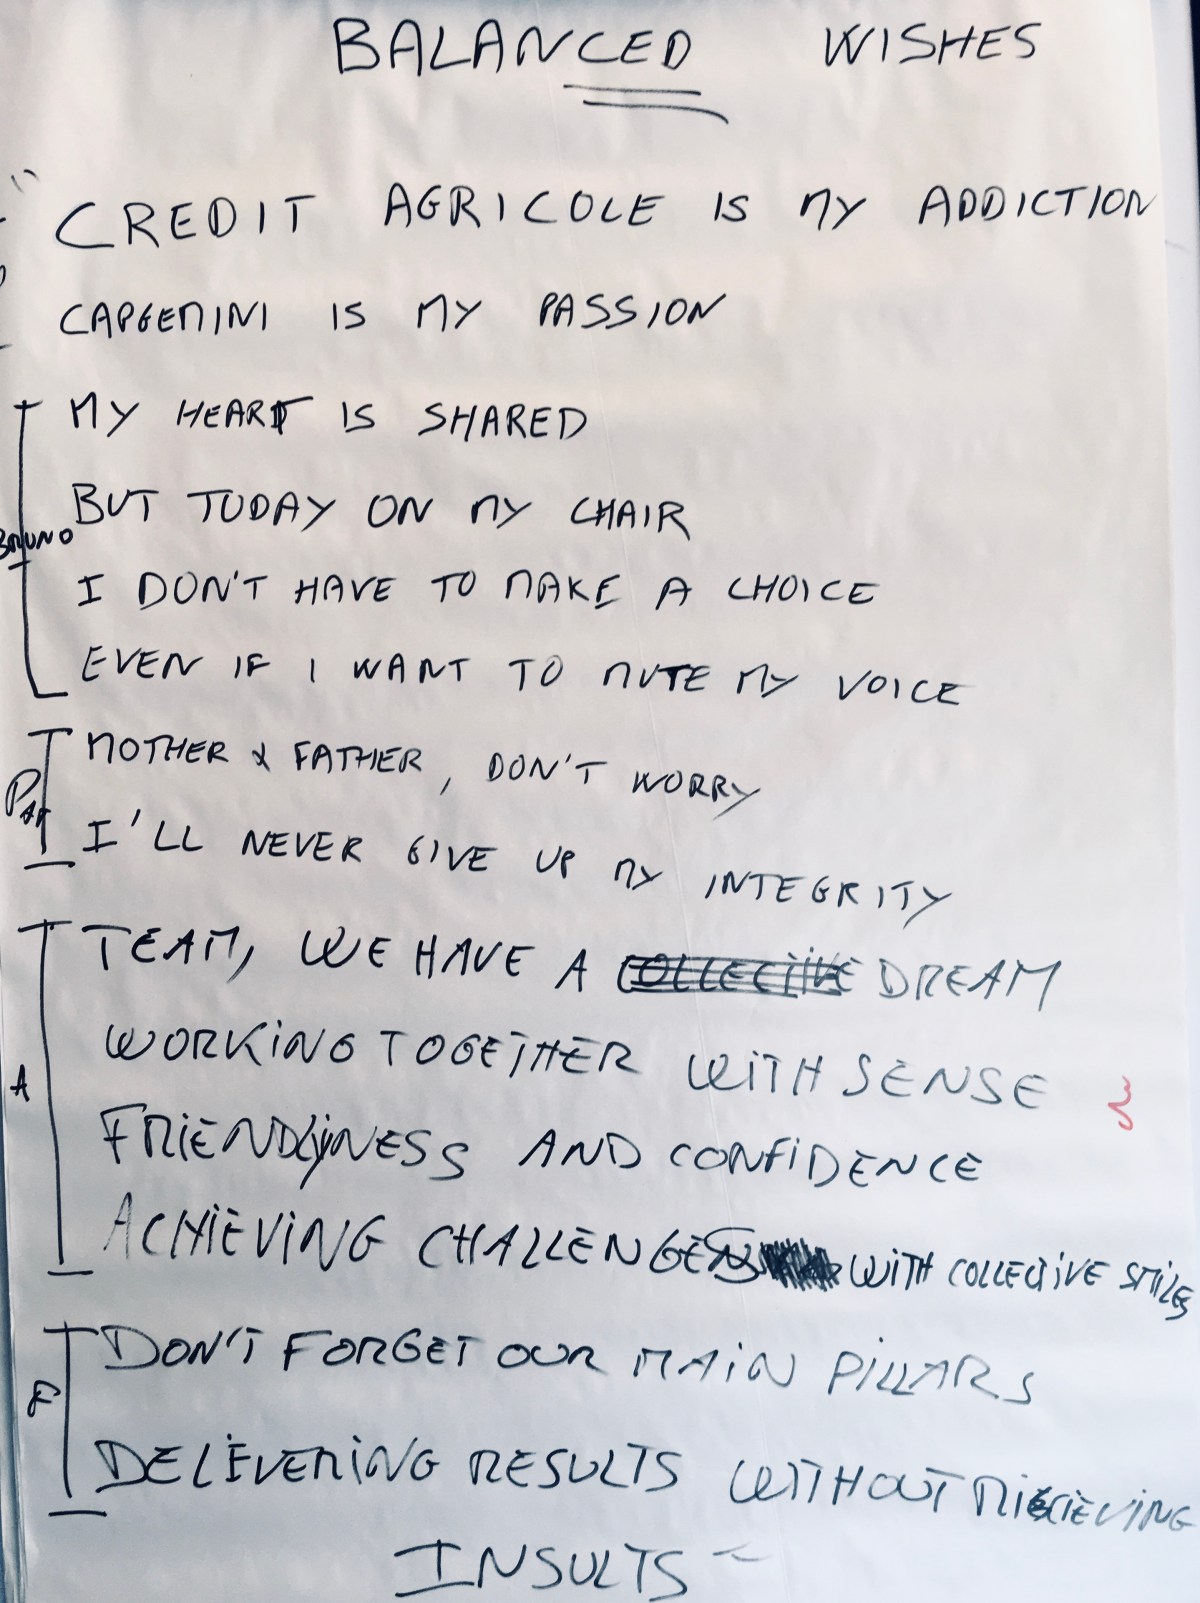 BALANCED WISHES
" CREDIT AGRICOLE IS MY ADDICTION
CAPGEMINI IS MY PASSION
MY HEART IS SHARED
BUT TODAY ON MY CHAIR
BRUNO
I DON'T HAVE TO MAKE A CHOICE
EVEN IF I WANT TO MUTE MY VOICE
MOTHER & FATHER, DON'T WORRY
PAT
I'LL NEVER GIVE UP MY INTEGRITY
TEAM, WE HAVE A COLLECTIVE DREAM
WORKING TOGETHER WITH SENSE
A
FRIENDLYNESS AND CONFIDENCE
ACHIEVING CHALLENGES WITH COLLECTIVE SMILES
DON'T FORGET OUR MAIN PILLARS
F
DELEVERING RESULTS WITHOUT
INSULTS